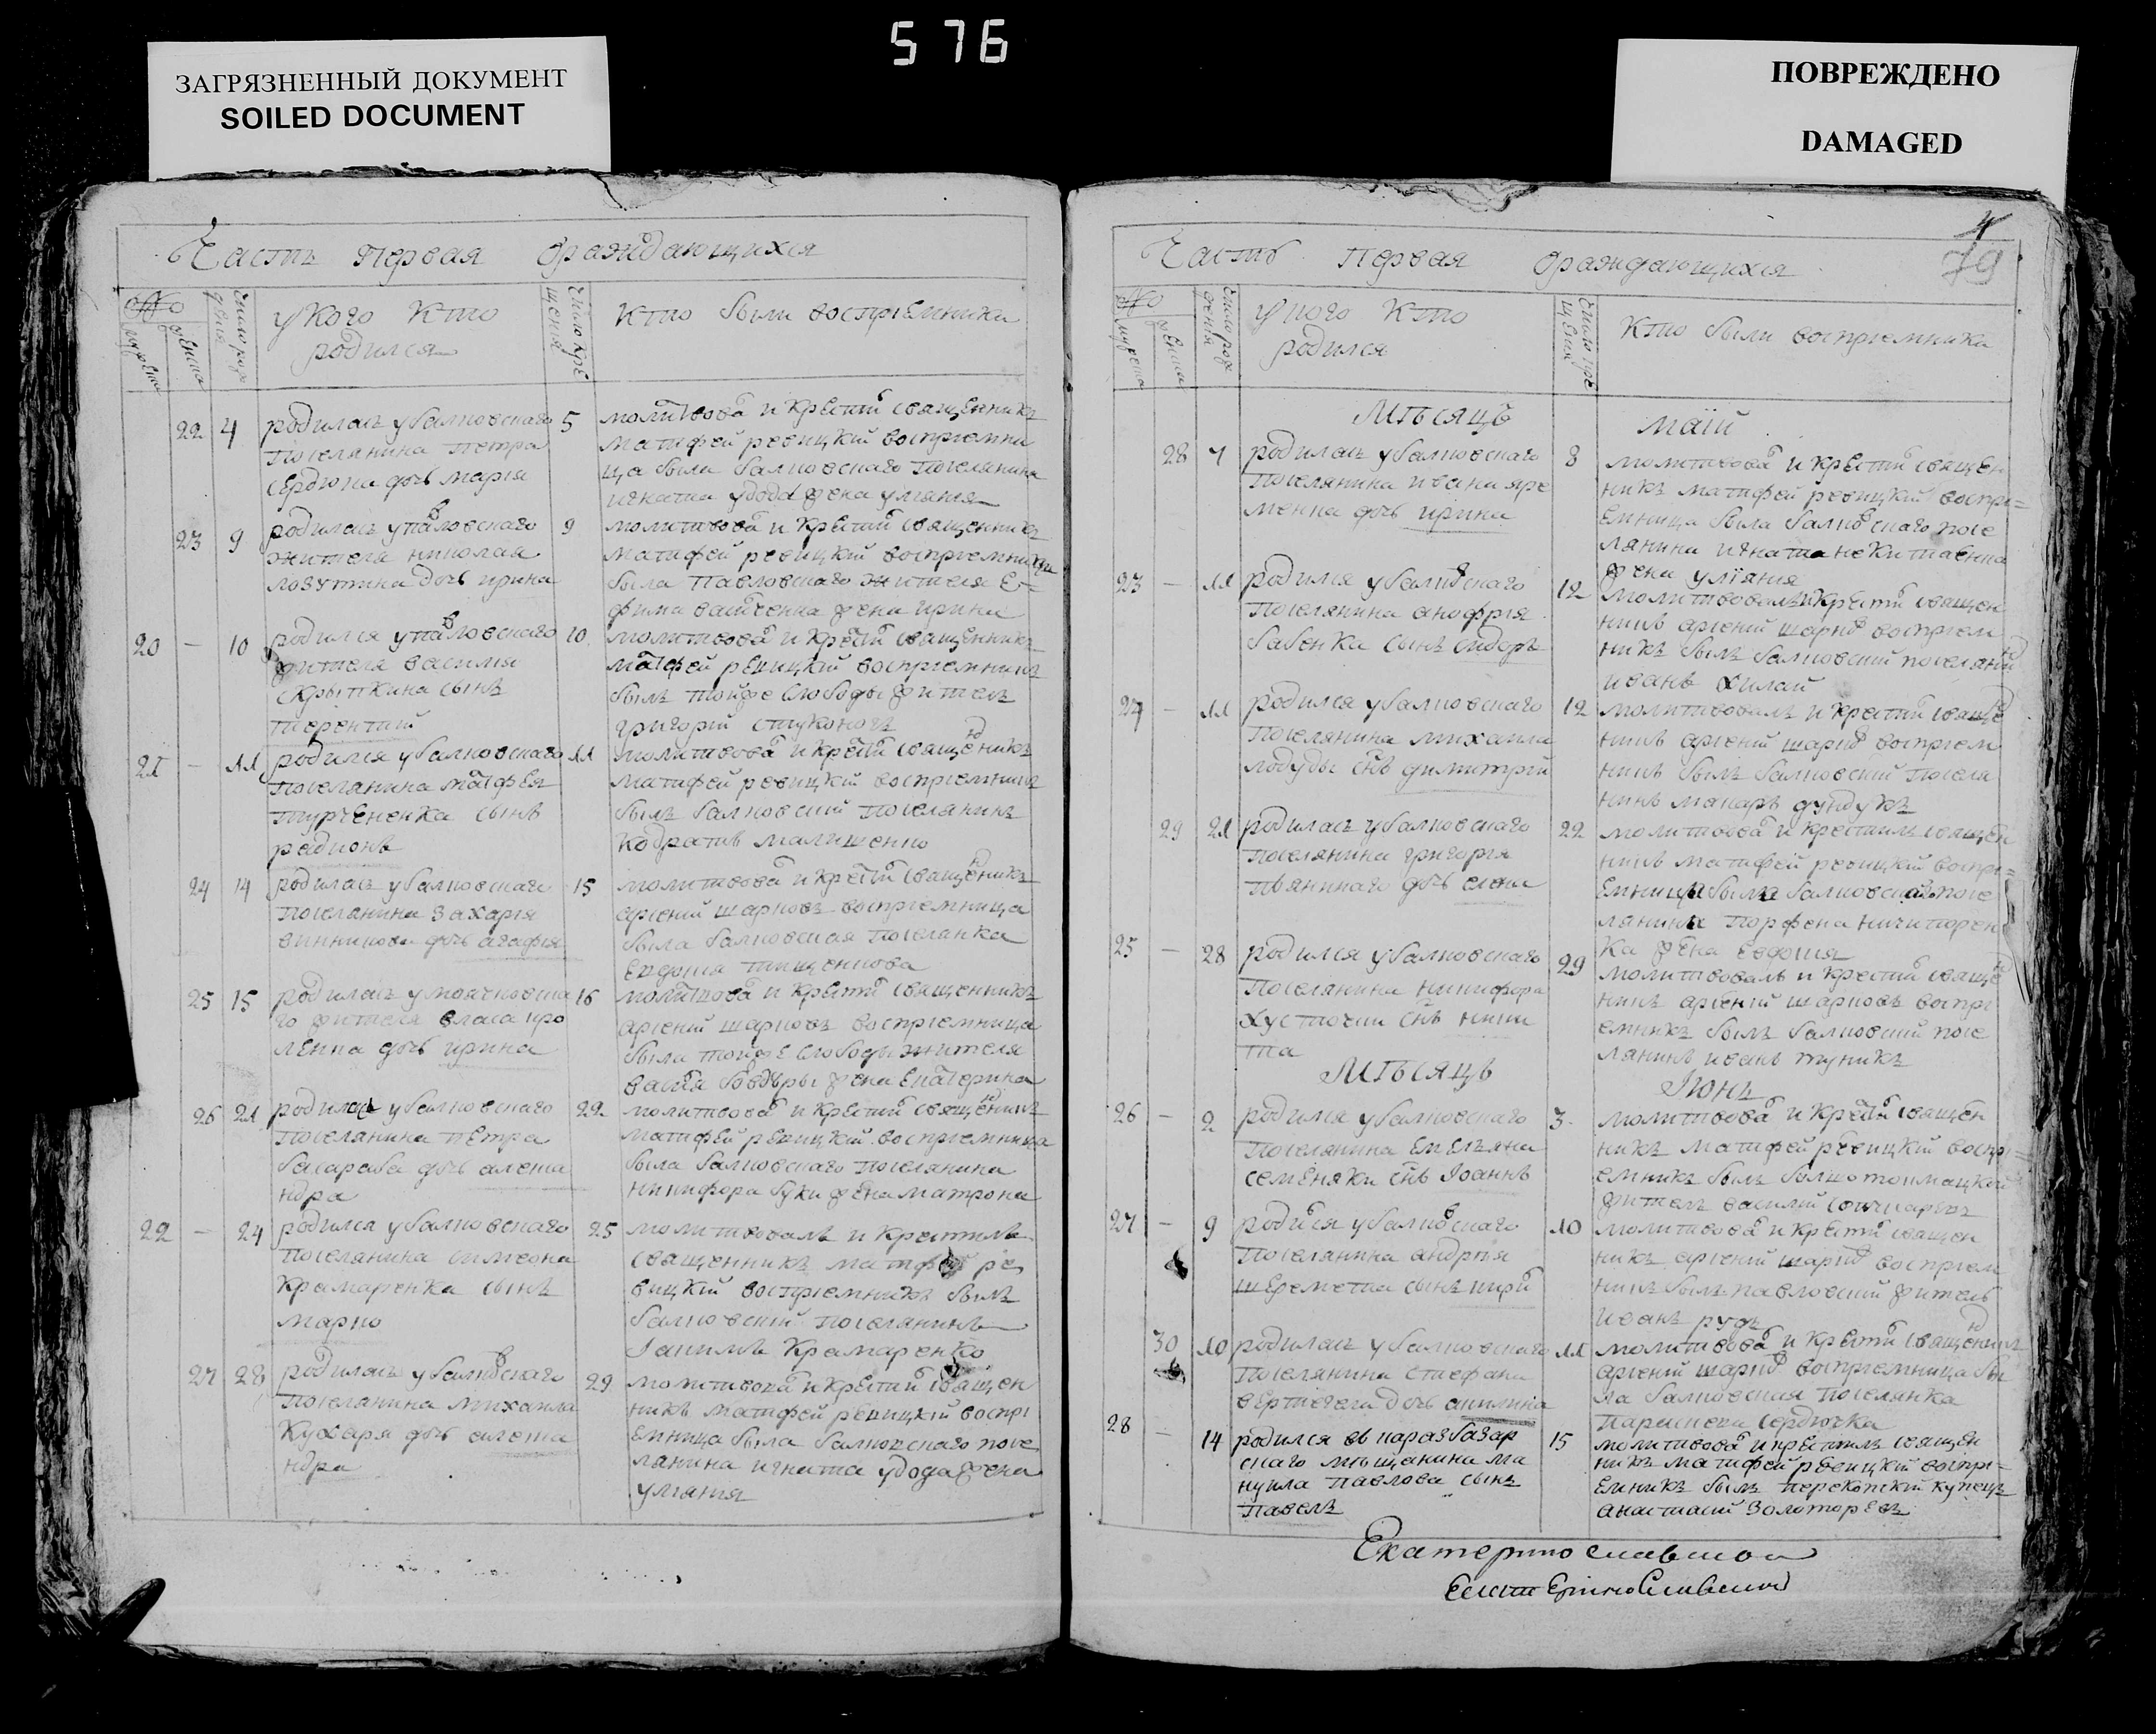 576
ЗАГРЯЗНЕННЫЙ ДОКУМЕНТ
SOILED DOCUMENT
ПОВРЕЖДЕНО
DAMAGED
Часть первая ораждающихся
№
Число рождения
у кого кто
родился
Число крещения
кто были восприемники
22 4 родилась у балковскаго 5
поселянина петра
сердюка дочь марія
молитвова и крестил священникъ
матфей ревицкій восприемни
ца была балковскаго поселянина
игната удода жена уліянія
23 9 родилась у павловскаго 9
жителя николая
лозуткина дочь ирина
молитвова и крестил священникъ
матфей ревицкій восприемница
была павловскаго жителя е=
фима жена ирина
20 — 10 родился у павловскаго 10
жителя василия
скрыпкина сынъ
терентий
молитвова и крестил священникъ
матфей ревицкій восприемникъ
былъ тойже слободы житель
григорій стуконогъ
21 — 11 родился у балковскаго 11
поселянина матфея
турченка сынъ
радионъ
молитвова и крестил священникъ
матфей ревицкій восприемникъ
былъ балковский поселянинъ
кодратъ малишенко
24 14 родилась у балковскаго 15
поселянина захарія
винникова дочь агафія
молитвова и крестил священникъ
арсений шарковъ восприемница
была балковская поселянка
евдокия тищенкова
25 15 родилась у молчковска 16
го жителя власа кро
ленка дочь ирина
молитвова и крестил священникъ
арсений шарковъ восприемница
была тойже слободы жителя
василя бондыры жена екатерина
26 21 родилась у балковскаго 22
поселянина петра
басараба дочь алекса
ндра
молитвова и крестил священникъ
матфей ревицкій восприемница
была балковскаго поселянина
никифора буки жена матрона
22 — 24 родился у балковскаго 25
поселянина симеона
крамаренка сынъ
марко
молитвовалъ и крестилъ
священникъ матфей ре
вицкій восприемникъ былъ
балковский поселянинъ
Іакимъ крамаренко
27 28 родилась у балковскаго 29
поселянина михаила
кухаря дочь алекса
ндра
молитвова и крестил священ
никъ матфей ревицкій воспрі
емница была балковскаго посе
лянина игната удода жена
уліянія
4
79
Часть первая ораждающихся
№
Число рождения
у кого кто
родился
Число крещения
кто были восприемники
Мѣсяцъ маїй
28 7 родилась у балковскаго 8
поселянина ивана яре
менка дочь ирина
молитвова и крестил священ
никъ матфей ревицкій воспрі=
емница была балковскаго посе
лянина игната некитаенка
жена уліянія
23 — 11 родился у балковскаго 12
поселянина анофрія
бабенка сынъ сидоръ
молитвовалъ и крестил священ
никъ арсений шарков восприем
никъ былъ балковский поселянин
иванъ хилай
24 — 11 родился у балковскаго 12
поселянина михаила
лободы снъ димитрій
молитвовалъ и крестил священ
никъ арсений шарков восприем
никъ былъ балковский поселя
нинъ макаръ дундукъ
29 21 родилась у балковскаго 22
поселянина григорія
пьянинаго дочь елена
молитвова и крестилъ священ
никъ матфей ревицкій воспрі=
емница была балковскаго посе
лянина порфена ничипорен
ка жена евдокия
25 — 28 родился у балковскаго 29
поселянина никифора
хусточки снъ ники
та
молитвовалъ и крестил священ
никъ арсений шарковъ воспрі
емникъ былъ балковский посе
лянинъ иванъ туникъ
Мѣсяцъ Іюнь
26 — 2 родился у балковскаго 3
поселянина емелъяна
семеняки снъ Іоаннъ
молитвова и крестил священ
никъ матфей ревицкій воспрі=
емникъ былъ большотокмацкий
житель василий
27 — 9 родился у балковскаго 10
поселянина андрия
шереметка сынъ кирил
молитвова и крестил священ
никъ арсений шарков восприем
никъ былъ павловский житель
иванъ рудъ
30 10 родилась у балковскаго 11
поселянина стефана
вертегела дочь акилина
молитвова и крестил священникъ
арсений шарков восприемница бы
ла балковская поселянка
параскева сердючка
28 — 14 родился в каразбазар 15
скаго мѣщанина ма
нуила павлова сынъ
павелъ
молитвова и крестилъ священ
никъ матфей ревицкій воспрі=
емникъ былъ перекопский купецъ
анастасий золоторевъ
Екатеринославской